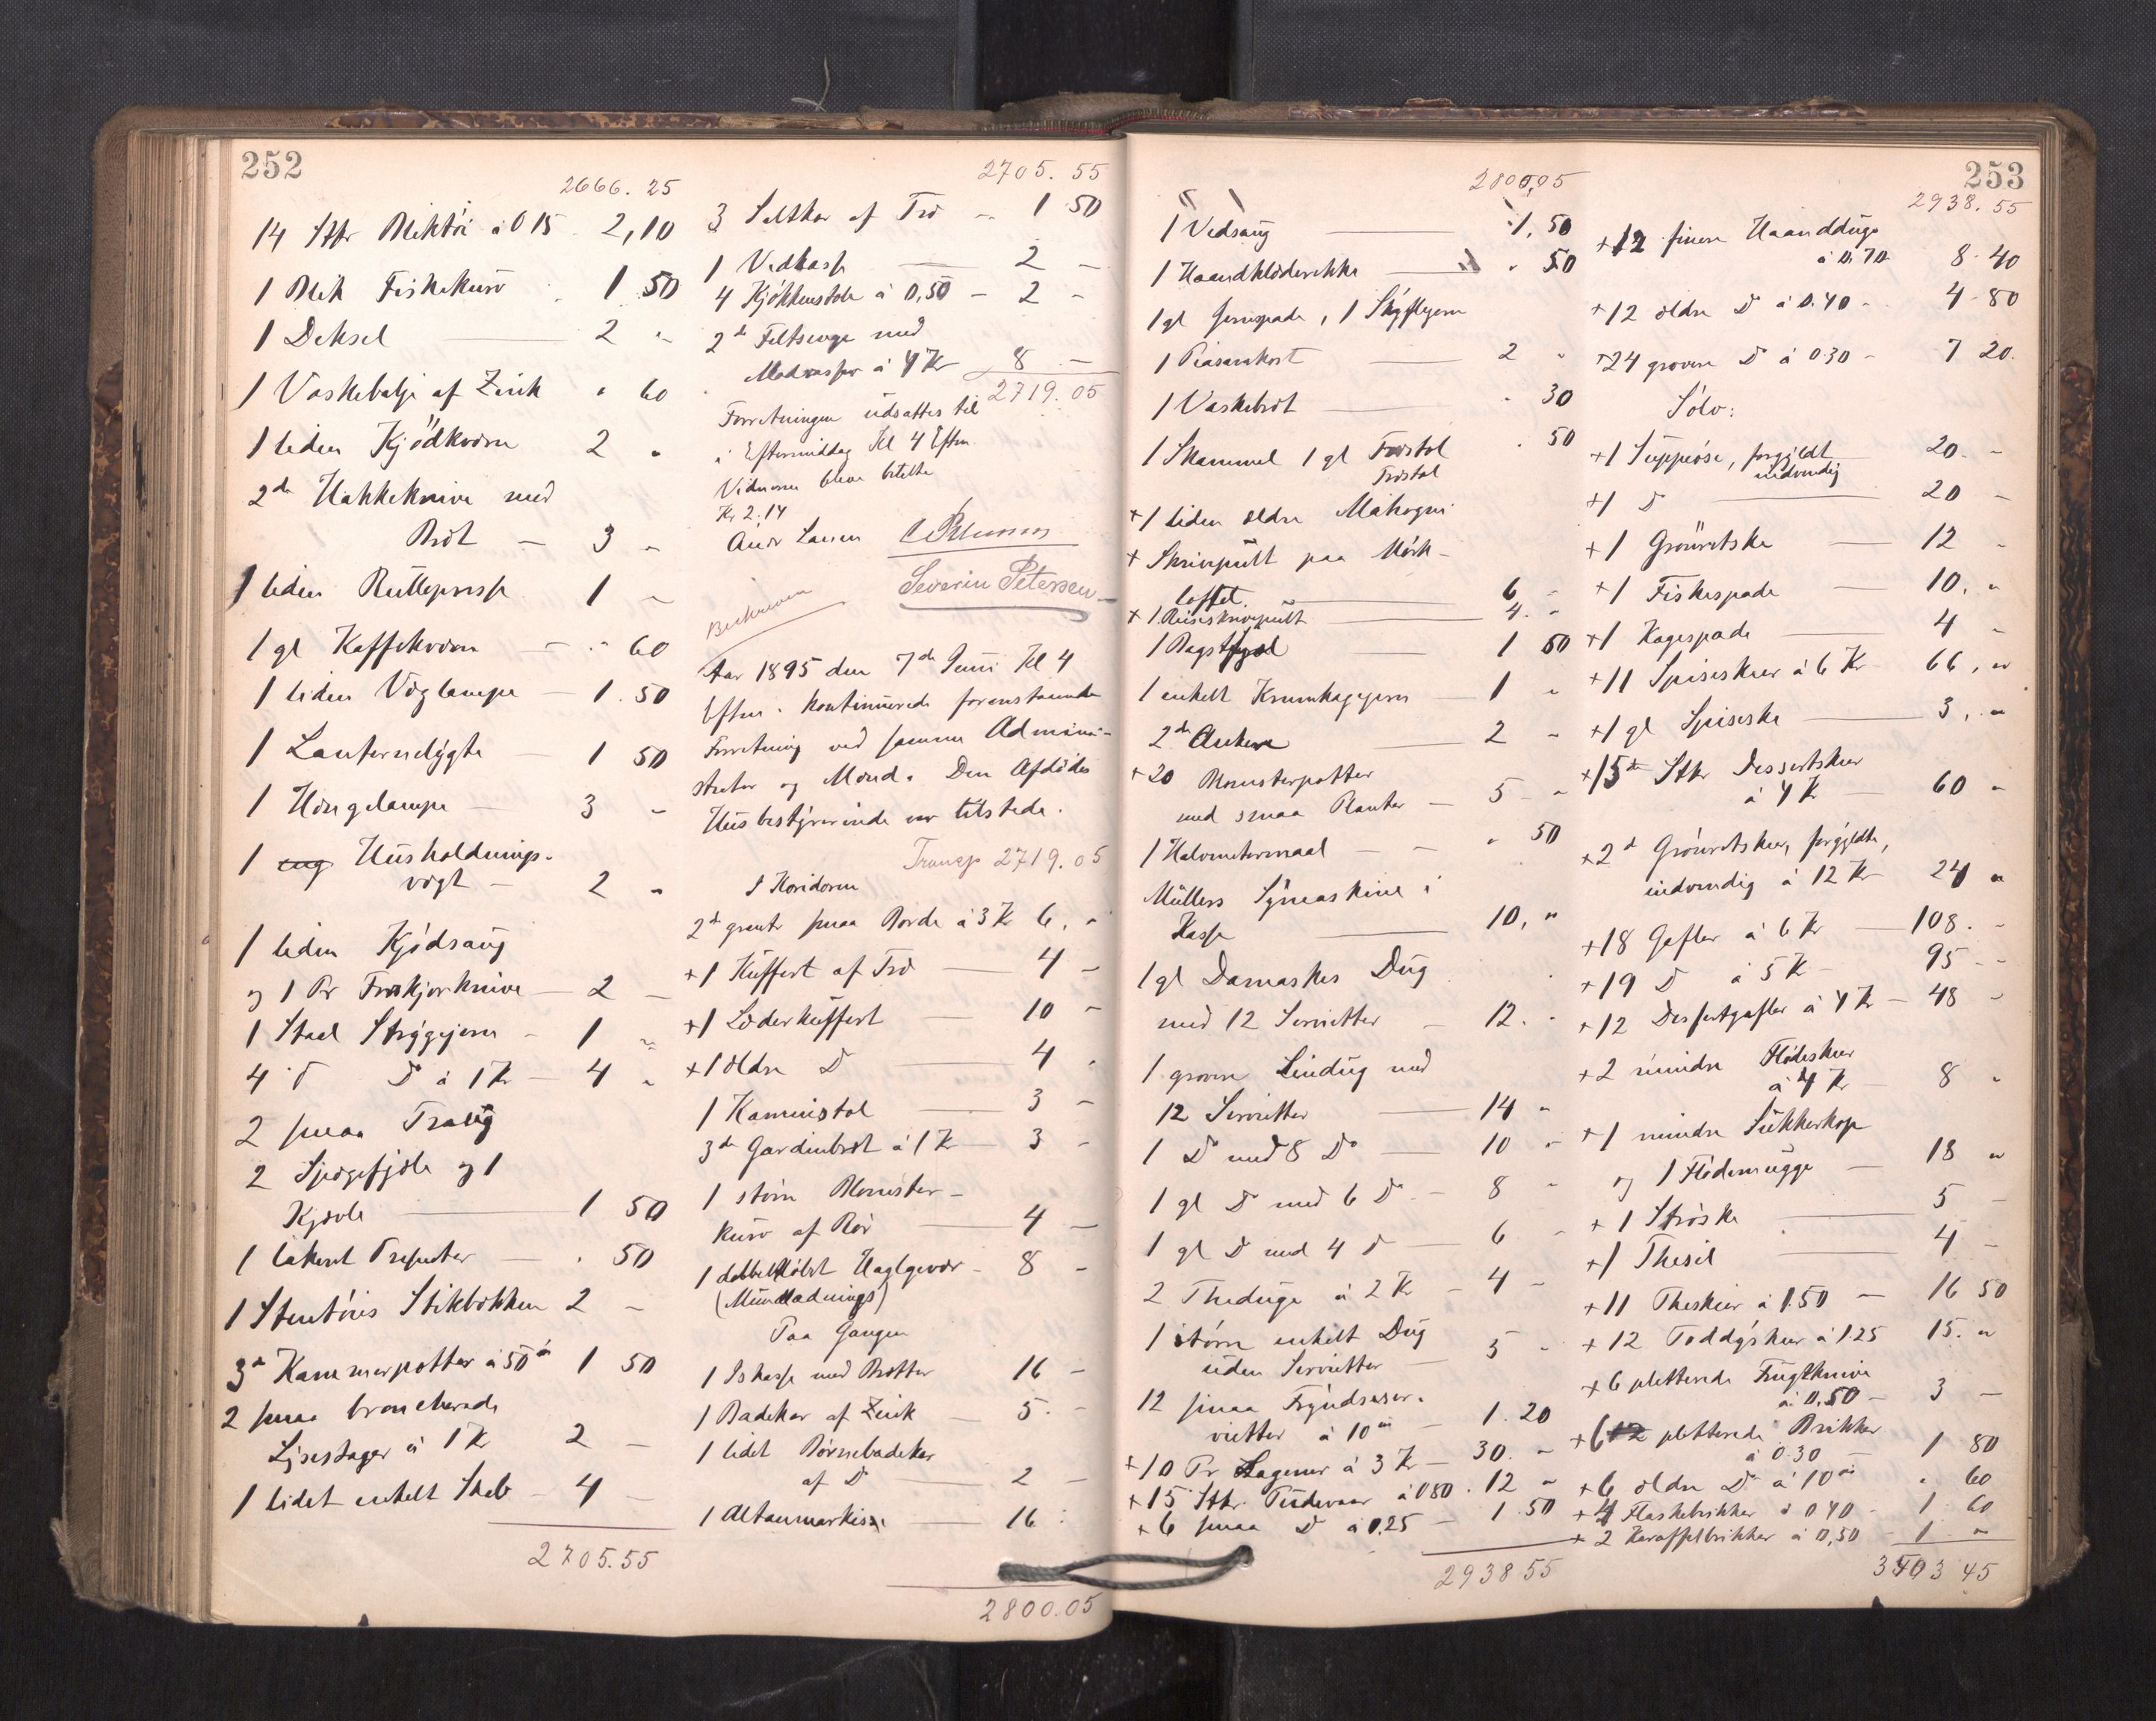 252
2666. 25
14 Stkr Bliktøi à 0 15 2,10
1 Blik Fiskekurv 1 50
1 Deksel 2 "
1 Vaskebalje af Zink " 60
1 liden Kjödkværn 2 "
2de Hakkeknive med
Bræt — 3 "
1 liden Rullepresse 1 "
1 gl Kaffekværn — " 60
1 liden Væglampe — 1. 50
1 Lanternelygte — 1 50
1 Hængelampe — 3 "
1 Husholdnings-
vægt — 2 "
1 liden Kjødsaug
og 1 Pr Forskjærknive — 2 —
1 Staal Strygejern — 1 "
4 D D à 1 Kr — 4 "
2 smaa Traug
2 Spegefjøle og 1
Kjævle — 1 50
1 lakeret Præsenter — . 50
1 Stentöis Stikbækken 2 —
3de Kammerpotter à 50 ør 1 50
2 smaa broncherade
Lysestager à 1 Kr 2 —
1 lidet enkelt Skab — 4 —
2705.55
2705. 55
3 Saltkar af Træ — 1 50
1 Vedkasse — 2 —
4 Kjökkenstole à 0,50 — 2 —
2de Feltsenge med
Madrasser à 4 Kr 8 —
2719.05
Forretningen udsattes til
i Eftermiddag Kl 4 Eftm
Vidnerne bleve betalte
Kr 2.14
Severin Petersen
Beskreven
Aar 1895 den 7de Juni Kl 4
Eftm. kontinuerede forenstaaende
Forretning ved samme Admini-
strator og Mænd. Den Afdödes
Husbestyrerinde var tilstede.
Transp 2719.05
I Koridoren
2de grønt smaa Borde à 3 Kr 6, "
+1 Kuffert af Træ — 4 —
+1 Læderkuffert — 10 —
+1 ældre D — 4 "
1 Kaminstol — 3 —
3de Gardinbræt à 1 Kr — 3 —
1 større Blomster-
kurv af Rör — 4 —
1 dobbeltløbet Haglgevær — 8 —
(Mundladnings)
Paa Gangen
1 Iskasse med Bøtter 16 —
1 Badekar af Zink — 5. —
1 lidet Børnebadekar
af D — 2 —
1 Altanmarkise — 16 :
2800.05
253
2800,05
1 Vedsaug — 1, 50
1 Haandklæderække — " 50
1 gl Jernspade, 1 Skyffeljern
1 Piasavakost — 2 "
1 Vaskebræt — " 30
1 Skammel 1 gl Træstol . 50
Træstol
+1 liden ældre Mahogni
+ Skrivepult paa Mörk-
loftet. — 6 —
+ 1 Reiseskrivepult — 4. "
1 Bagstfjøl — 1 50
1 enkelt Krumkagejern — 1 "
2de Ankere — 2 "
+20 Blomsterpotter
med smaa Planter — 5 — "
1 Halvmetermaal — " 50
Müllers Symaskine i
Kasse — 10, "
1 gl Damaskes Dug
med 12 Servietter — 12. "
1 grovere Lindug med
12 Servietter — 14 "
1 D med 8 Do — 10 "
1 gl D med 6 D — 8 "
1 gl D med 4 D — 6 "
2 Theduge à 2 Kr — 4 —
1 större enkelt Dug
uden Servietter — 5 "
12 smaa Fryndseser-
vietter à 10 ør — 1. 20
+10 Pr Lagener à 3 Kr — 30. "
+15 Stkr. Pudevaar à 0 80 . 12 "
+6 smaa D à 0,25 — 1. 50
2938 55
2938. 55
+12 finere Haandduge
à 0.70 8. 40
+12 ældre D à 0.40 — 4. 80
+24 grovere D à 0 30 — 7 20.
Sölv:
+1 Suppeøse, forgyldt
indvendig 20. —
+1 D — 20 —
+1 Grönvetske — 12 "
+1 Fiskespade — 10. "
+1 Kagespade — 4 "
+11 Spiseskeer à 6 Kr 66, "
+1 gl Spiseske — 3, "
+15de Stkr Dessertskeer
à 4 Kr — 60 "
+2de Grönvetskeer, forgyldte,
indvendig à 12 Kr 24 "
+18 Gafler à 6 Kr — 108. —
+19 D à 5 Kr 95 —
+12 Dessertgafler à 4 Kr — 48 —
+2 mindre Flödeskeer
à 4 Kr 8 "
+1 mindre Sukkerkop
og 1 Flödemugge — 18 "
+1 Ströske — 5 —
+1 Thesil — 4 —
+11 Theskeer à 1.50 — 16 50
+12 Toddyskeer à 1.25 15. "
+6 pletterede Frugtknive
à 0,50 — 3 —
+6 12 pletterede Brikker
à 0.30 — 1 80
+6 ældre D à 10 ør " 60
+4 Flaskebrikker à 0 40 — 1. 60
+2 Karaffelbrikker à 0,50 — 1 "
3503 45